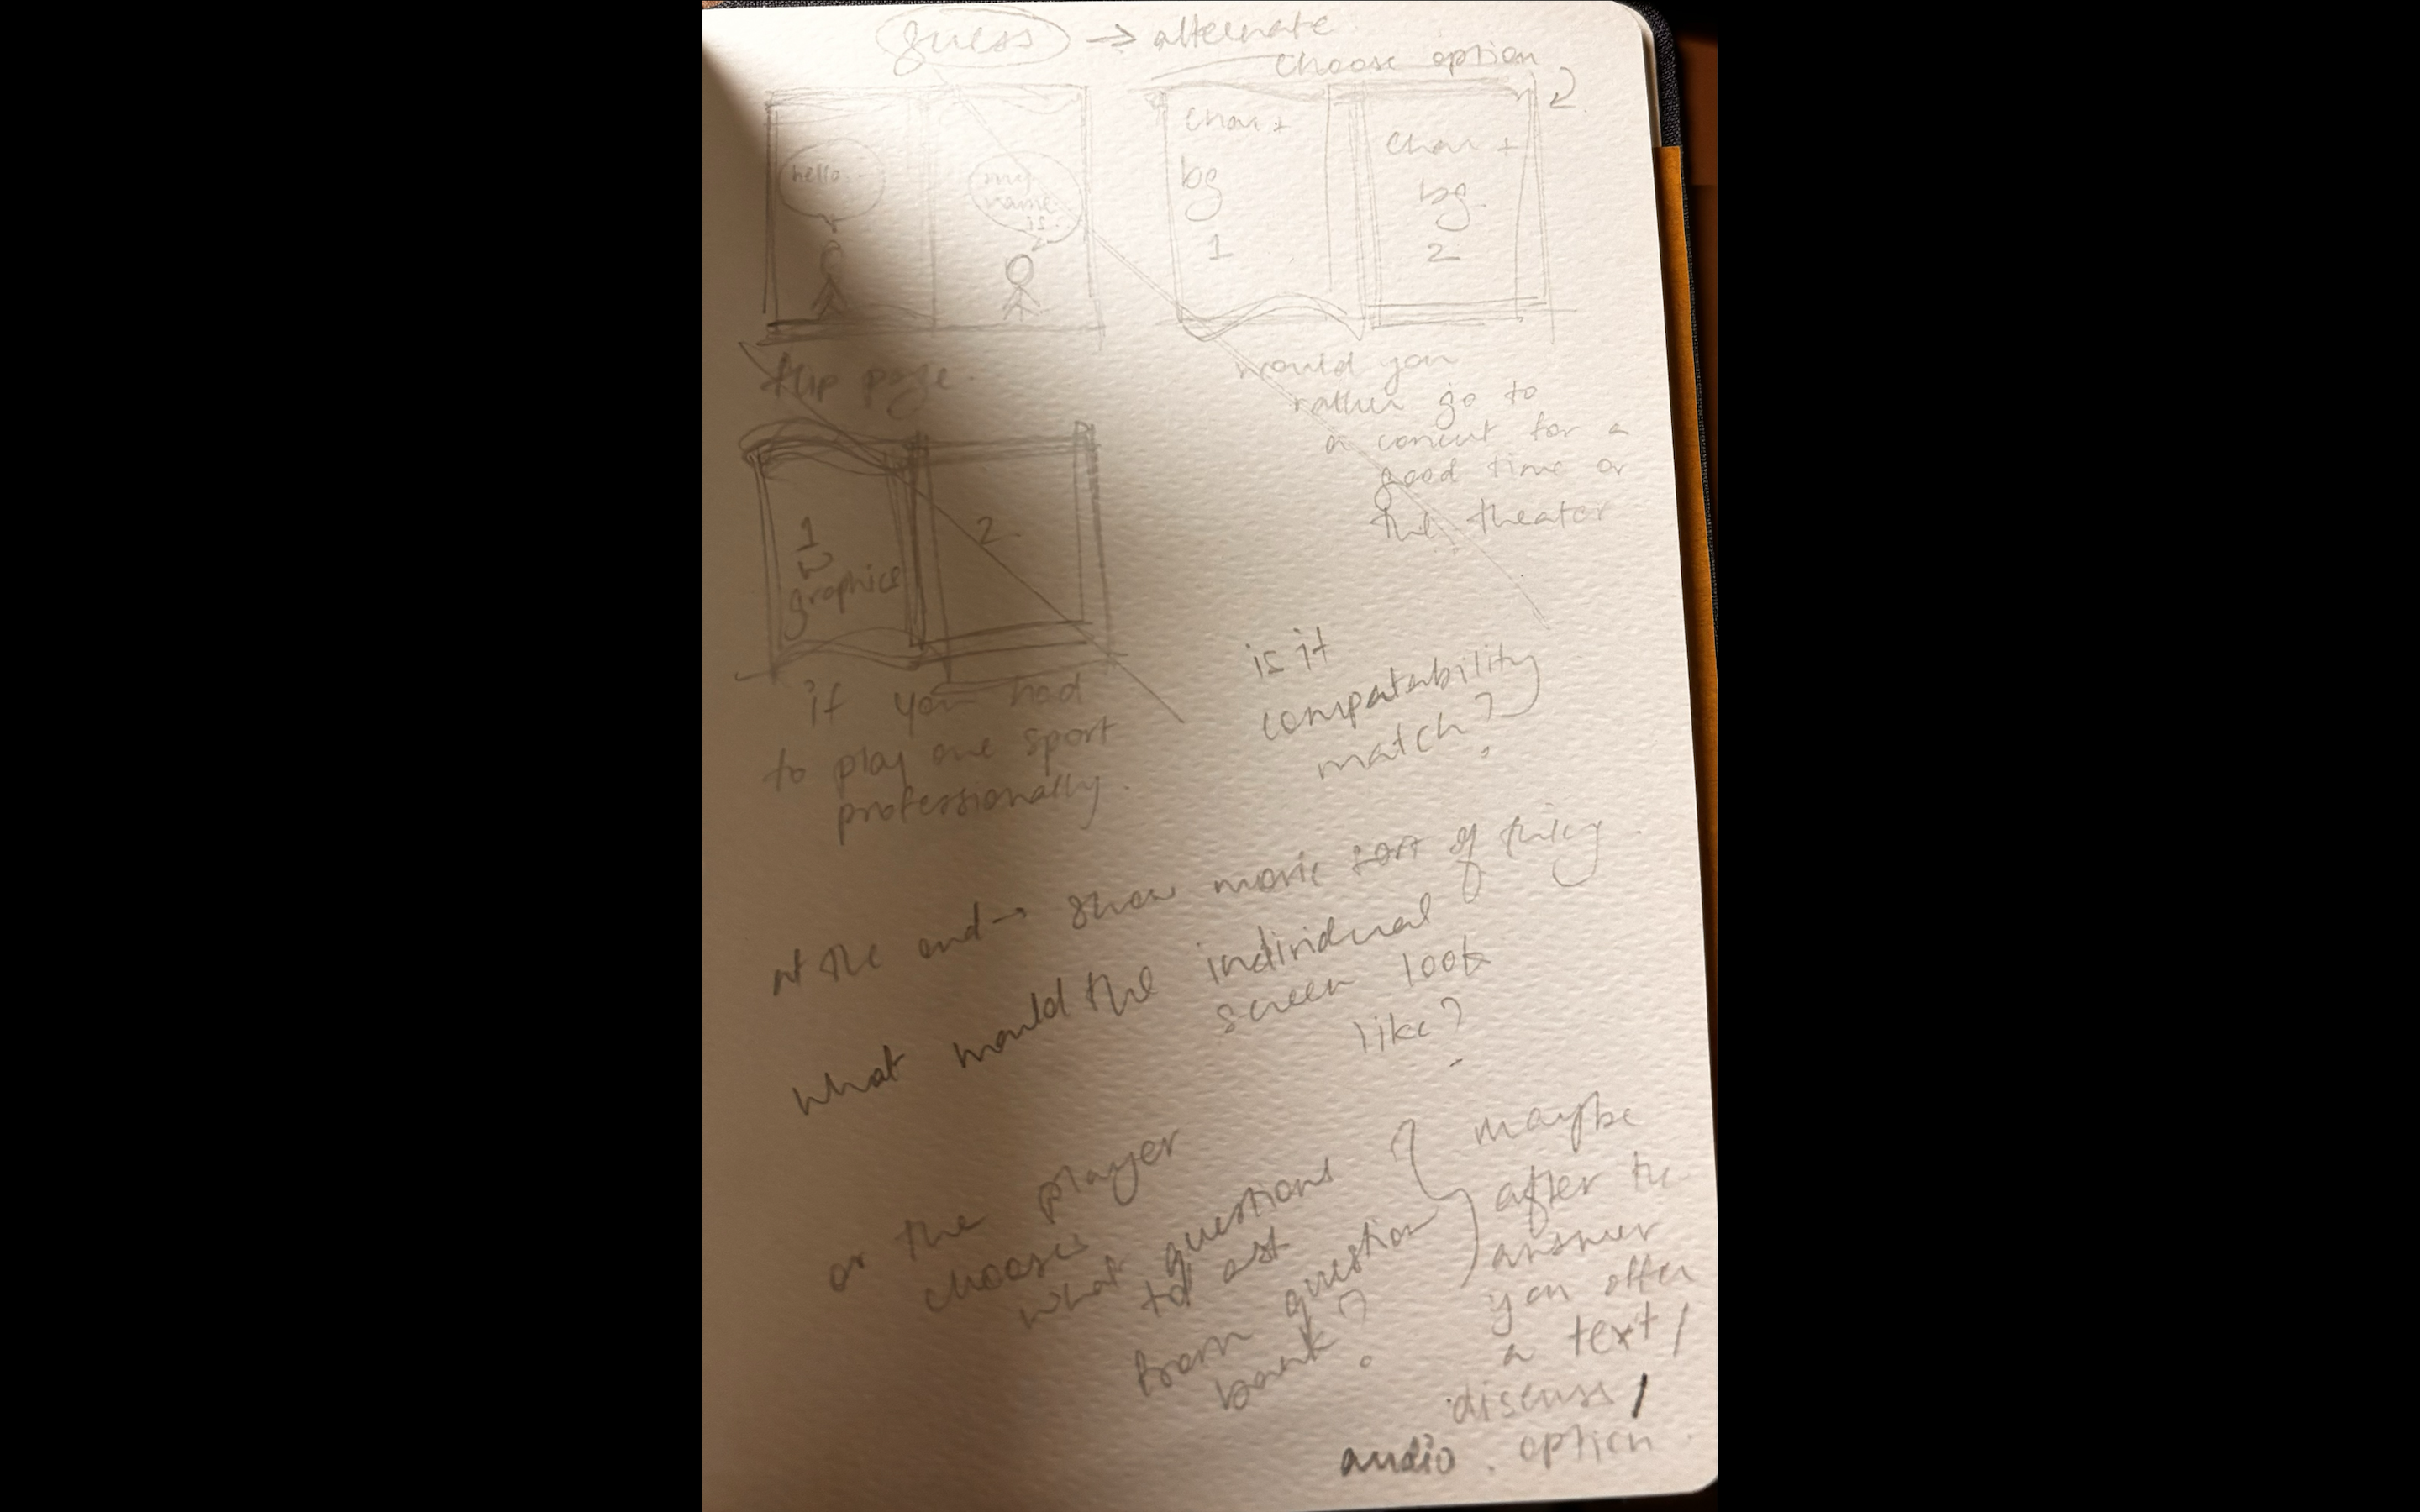 guess → alternate
choose option
hello..
my
name
is..
char +
bg
1
char +
bg
2
flip page.
would you
rather go to
a concert for a
good time or
the theater
1
graphics
2
if you had
to play one sport
professionally.
is it
compatability
match?
at the end → show movie sort of thing.
what would the individual
screen look
like?
or the player
chooses
what questions
to ask
from question
bank?
maybe
after the
answer
you offer
a text/
discuss/
audio . option.